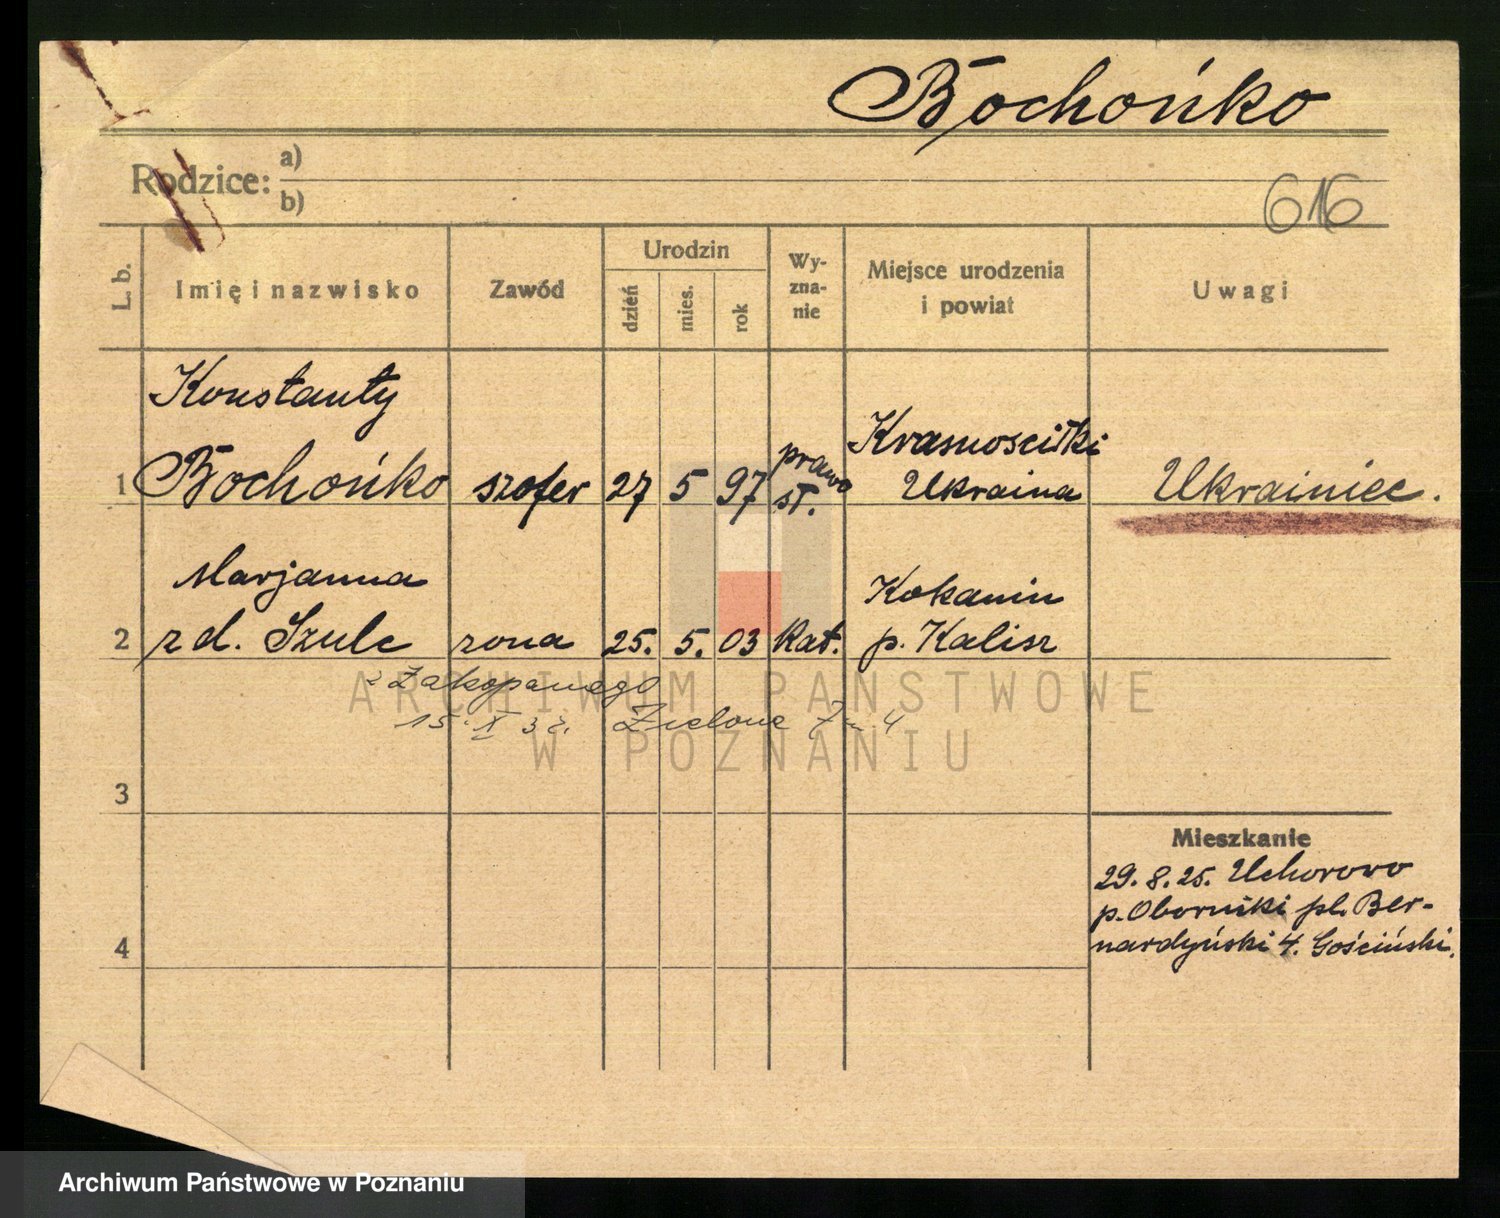 Bochońko
Rodzice: a)
b)
616
L. b.
Imię i nazwisko
Zawód
Urodzin
dzień
mies.
rok
Wy-
zna-
nie
Miejsce urodzenia
i powiat
Uwagi
1
Konstanty
Bochońko
szofer
27
5
97
prawo
sł.
Ukraina
Ukrainiec.
2
Marjanna
z d. Szulc
żona
25.
5.
03
Kat.
Kokanin
p. Kalisz
z Zakopanego
15. X 32. Zielona 7 m 4
ARCHIWUM PAŃSTWOWE
W POZNANIU
3
4
Mieszkanie
29. 8. 25. Uchorowo
p. Oborniki pl. Ber-
nardyński 4. Gościński.
Archiwum Państwowe w Poznaniu